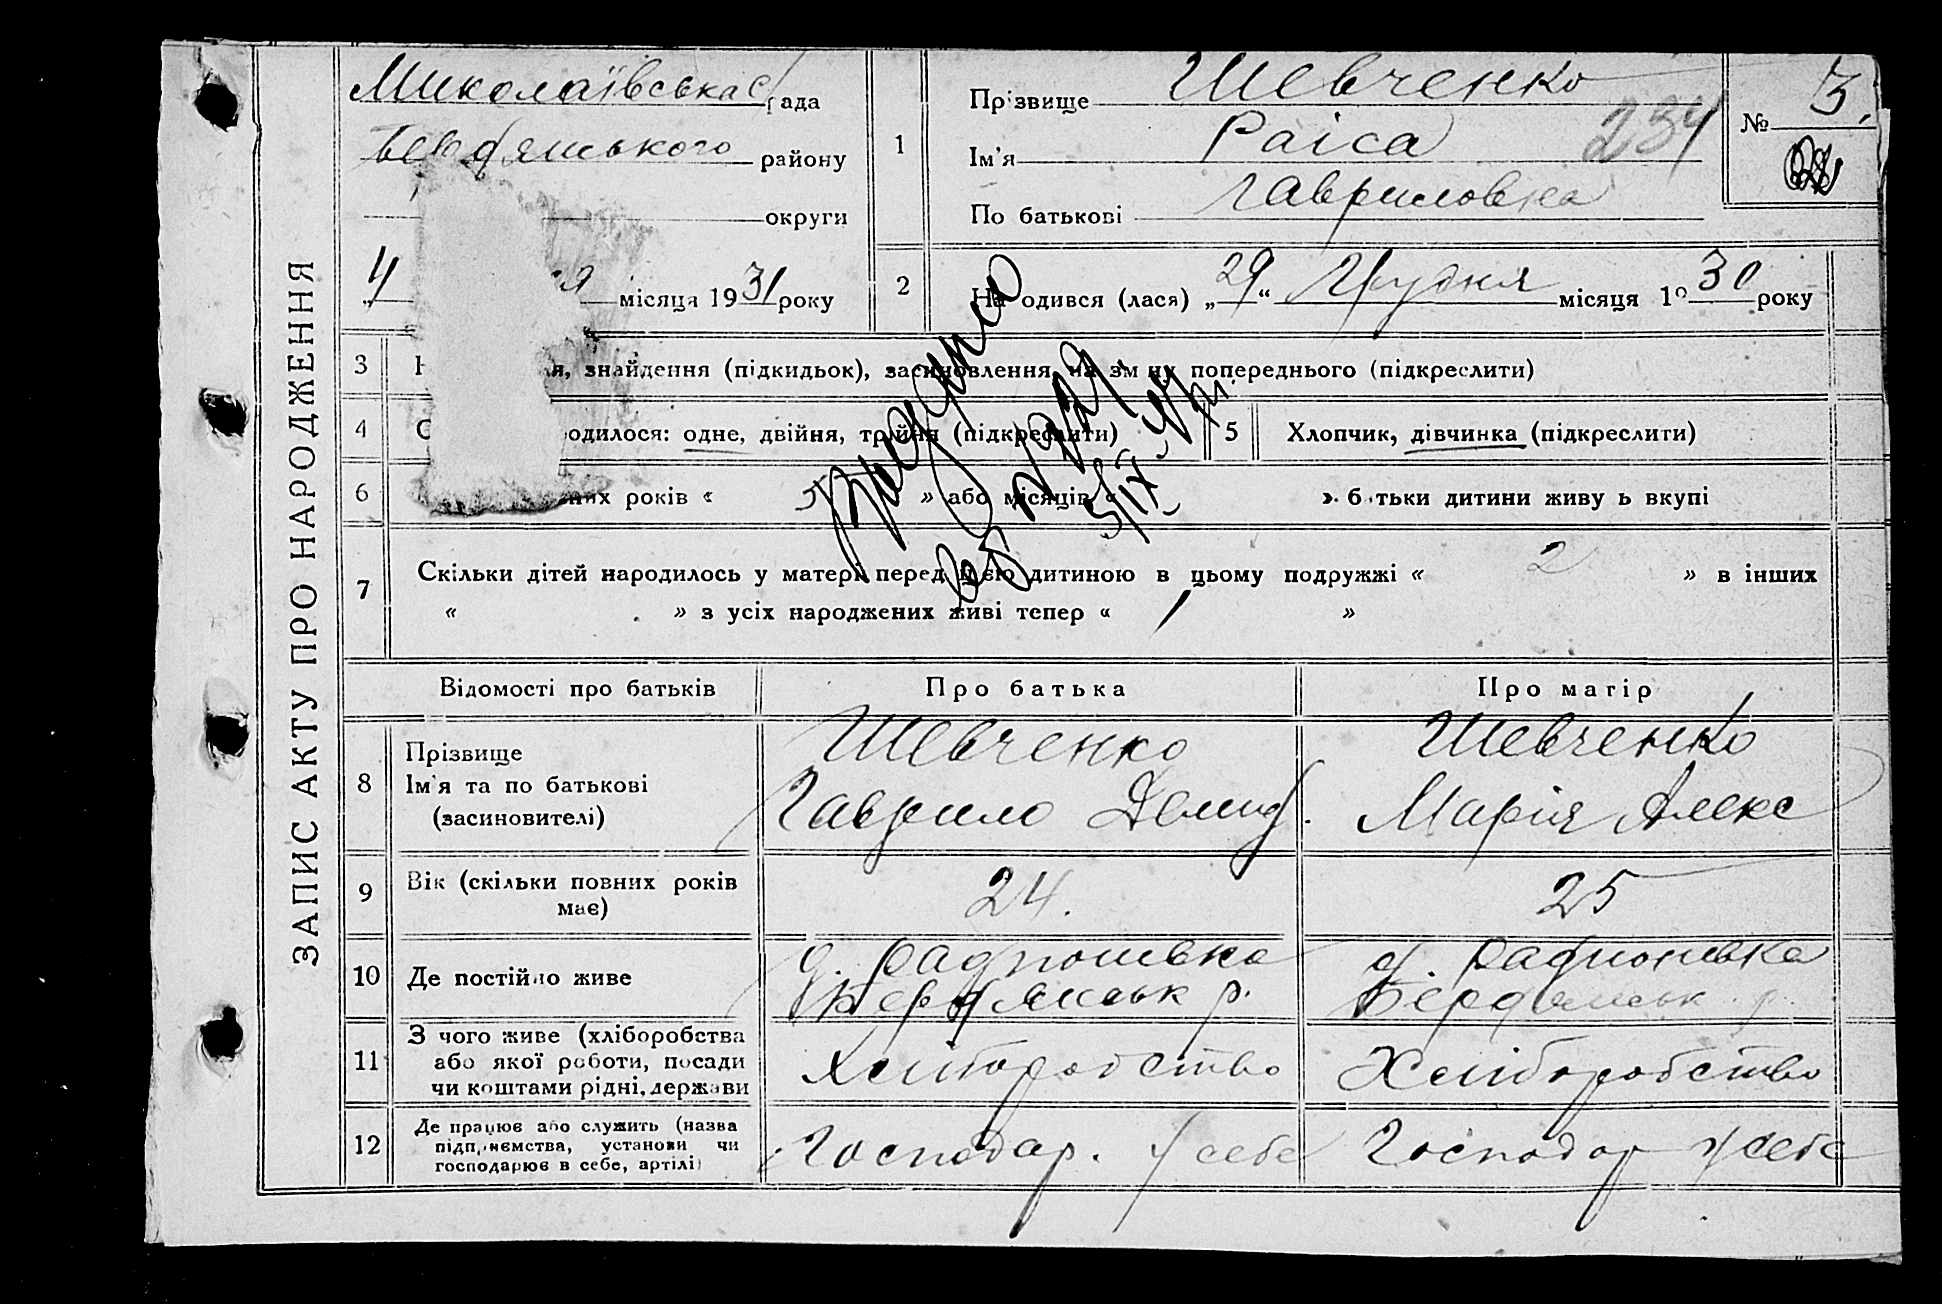 ЗАПИС АКТУ ПРО НАРОДЖЕННЯ
Миколаївська с/рада
Бердянського району
округи
4 я місяця 1931 року
1
Прізвище Шевченко
Ім'я Раіса 234
По батькові Гавриловна
№ 3.
2
Народився (лася) „29“ Грудня місяця 1930 року
3 я, знайдення (підкидьок), засиновлення, на зміну попереднього (підкреслити)
4 одилося: одне, двійня, трійня (підкреслити)
5 Хлопчик, дівчинка (підкреслити)
6 них років « 5 » або місяців « » батьки дитини живуть вкупі
7 Скільки дітей народилось у матері перед цією дитиною в цьому подружжі « 2 » в інших
« » з усіх народжених живі тепер « 1 »
Відомості про батьків Про батька Про матір
8 Прізвище
Ім'я та по батькові
(засиновителі)
Шевченко
Гаврило Демид.
Шевченко
Марія Алекс
9 Вік (скільки повних років
має)
24.
25
10 Де постійно живе
Бердянськ р.
Бердянськ. р.
11 З чого живе (хліборобства
або якої роботи, посади
чи коштами рідні, держави
Хліборобство
Хліборобство
12 Де працює або служить (назва
підприємства, установи чи
господарює в себе, артілі)
Господар. у себе
Господар у себе